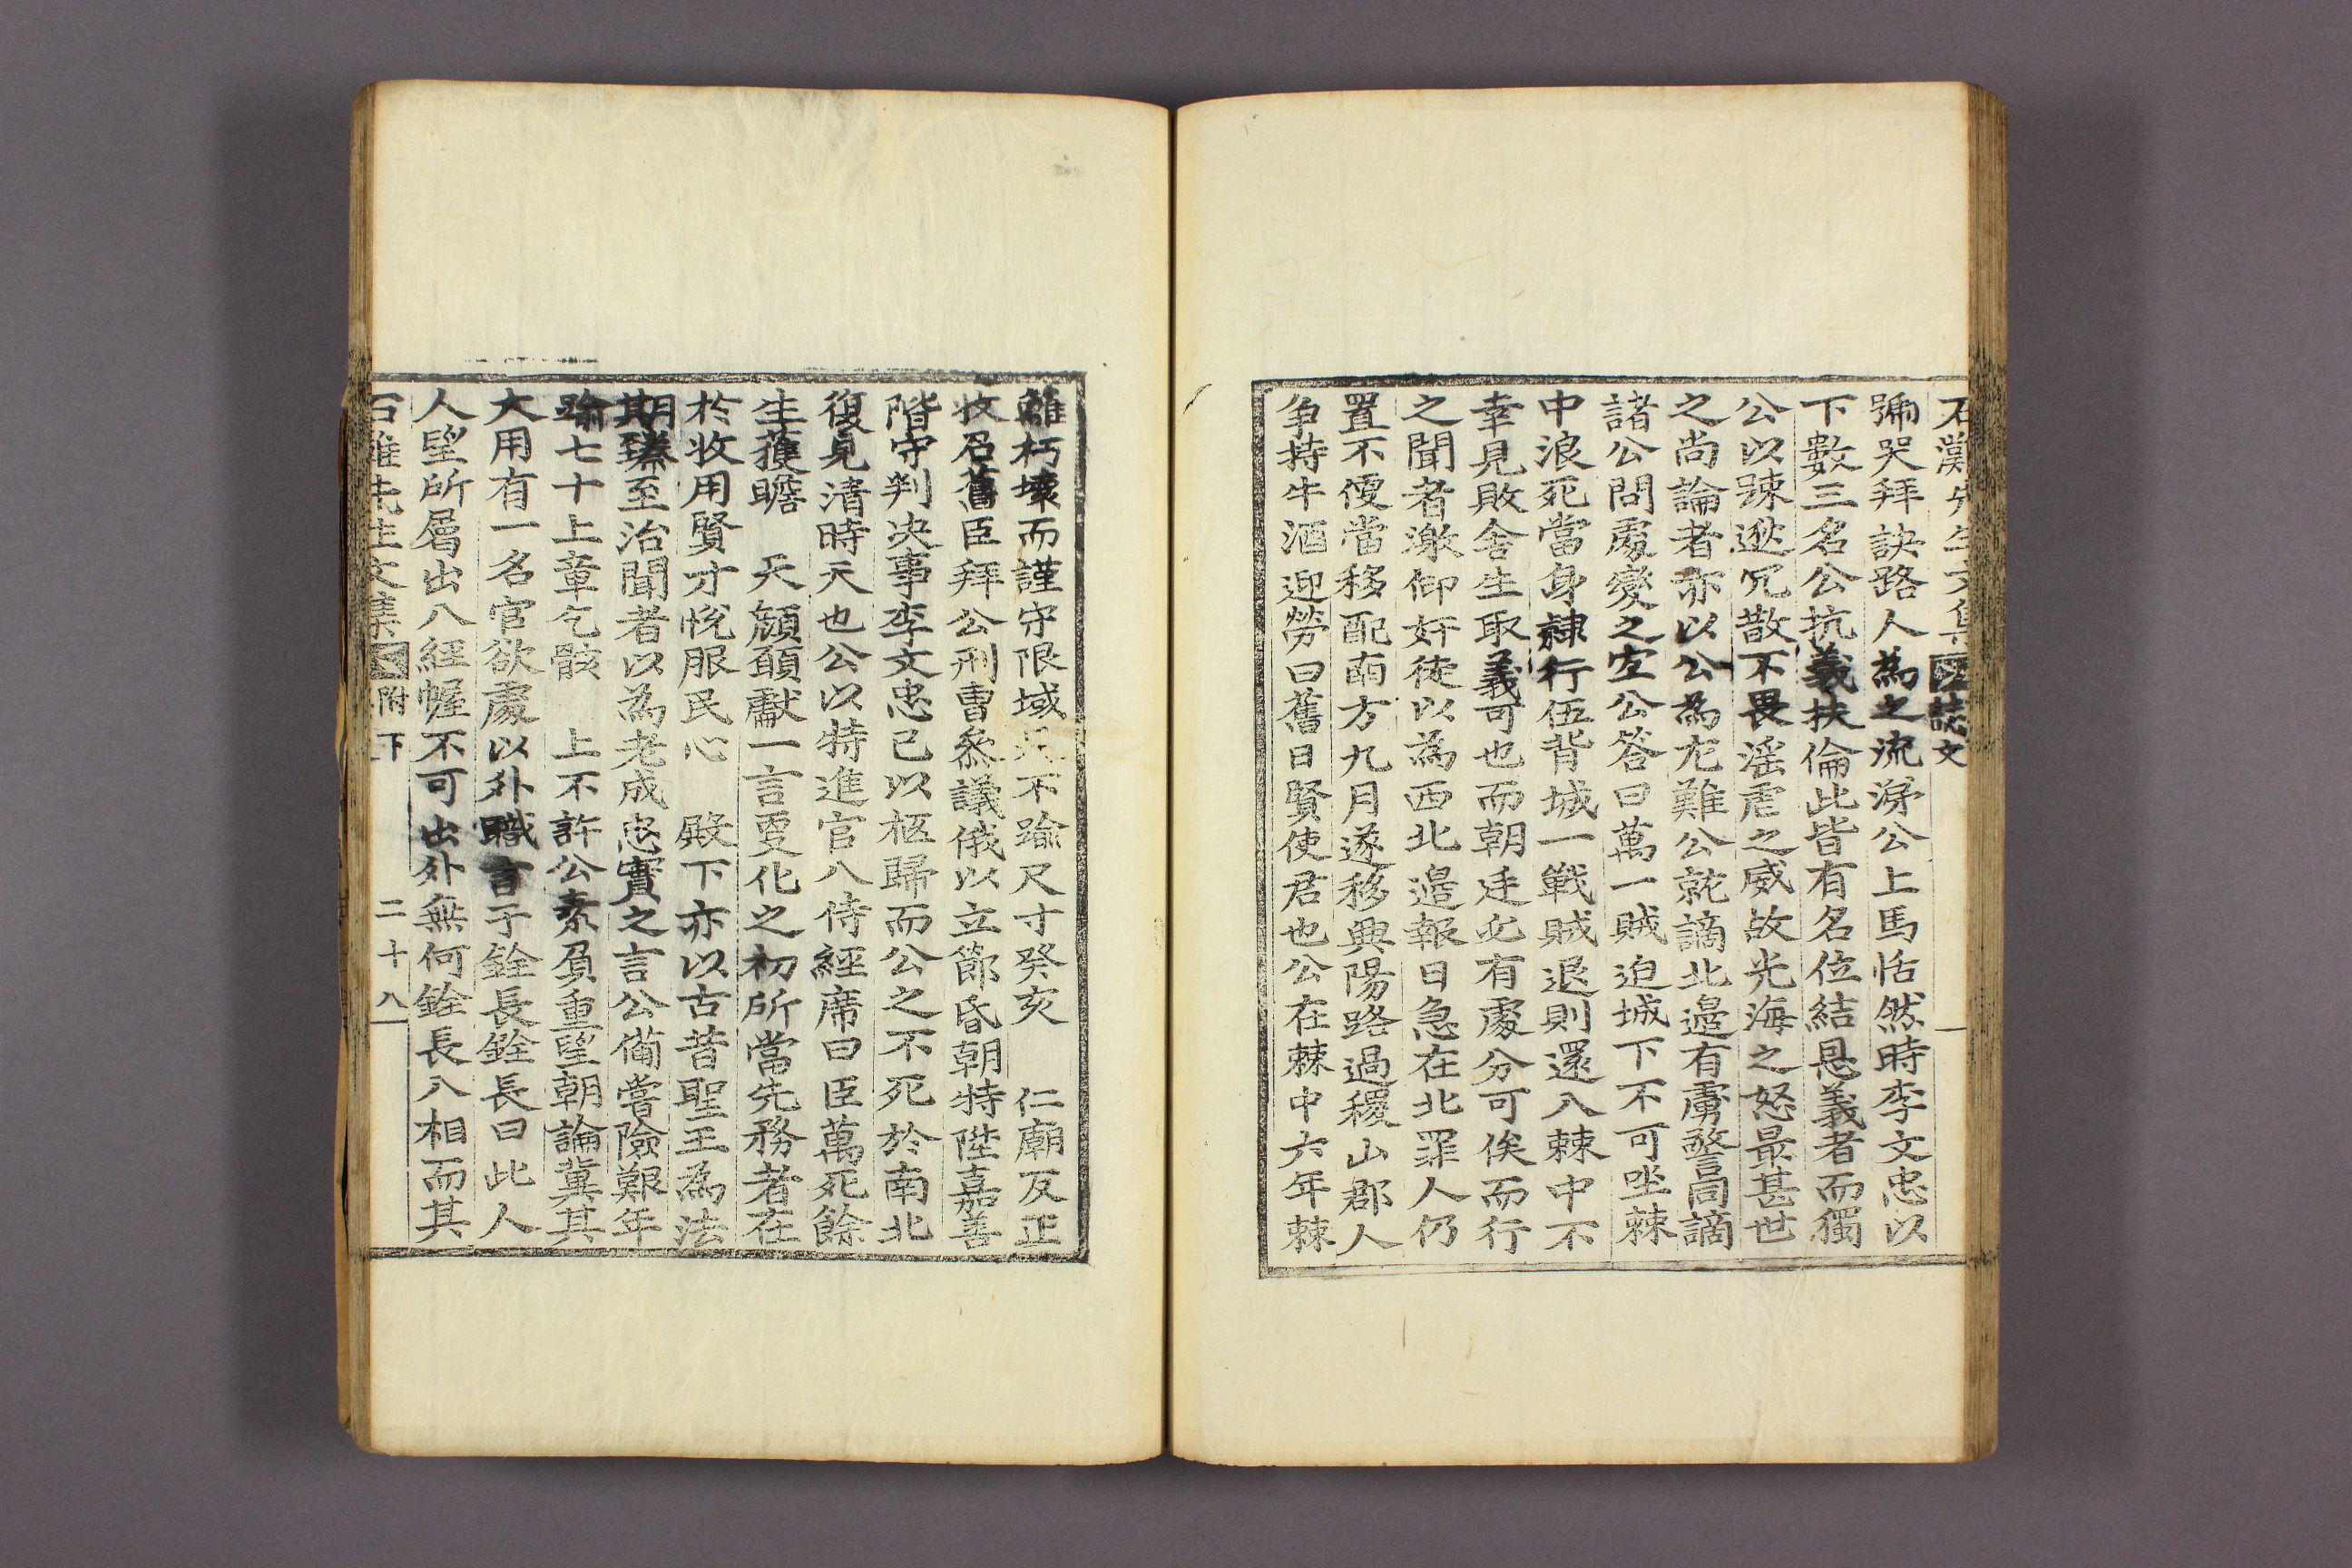 石灘先生文集 誌文
號哭拜訣路人為之流涕公上馬恬然時李文忠以
下數三名公抗義扶倫此皆有名位結恩義者而獨
公以踈逖冗散不畏滛虐之威故光海之怒最甚世
之尚論者亦以公為尢難公就謫北邉有虜警同謫
諸公問處變之宜公答曰萬一賊迫城下不可坐棘
中浪死當身隷行伍背城一戰賊退則還入棘中不
幸見敗舍生取義可也而朝廷必有處分可俟而行
之聞者激仰奸徒以為西北邉報日急在北罪人仍
置不便當移配南方九月遂移興陽路過稷山郡人
爭持牛酒迎勞曰舊日賢使君也公在棘中六年棘
雖朽壞而謹守限域只不踰尺寸癸亥 仁廟反正
收召舊臣拜公刑曹叅議俄以立節昏朝特陞嘉善
階守判决事李文忠已以柩歸而公之不死於南北
復見清時天也公以特進官入侍經席曰臣萬死餘
生獲瞻 天顔願獻一言更化之初所當先務者在
於收用賢才悅服民心 殿下亦以古昔聖王為法
期臻至治聞者以為老成忠實之言公備嘗險艱年
踰七十上章乞骸 上不許公素負重望朝論冀其
大用有一名官欲處以外職言于銓長銓長曰此人
人望所屬出入經幄不可出外無何銓長入相而其
石灘先生文集 附 下 二十八